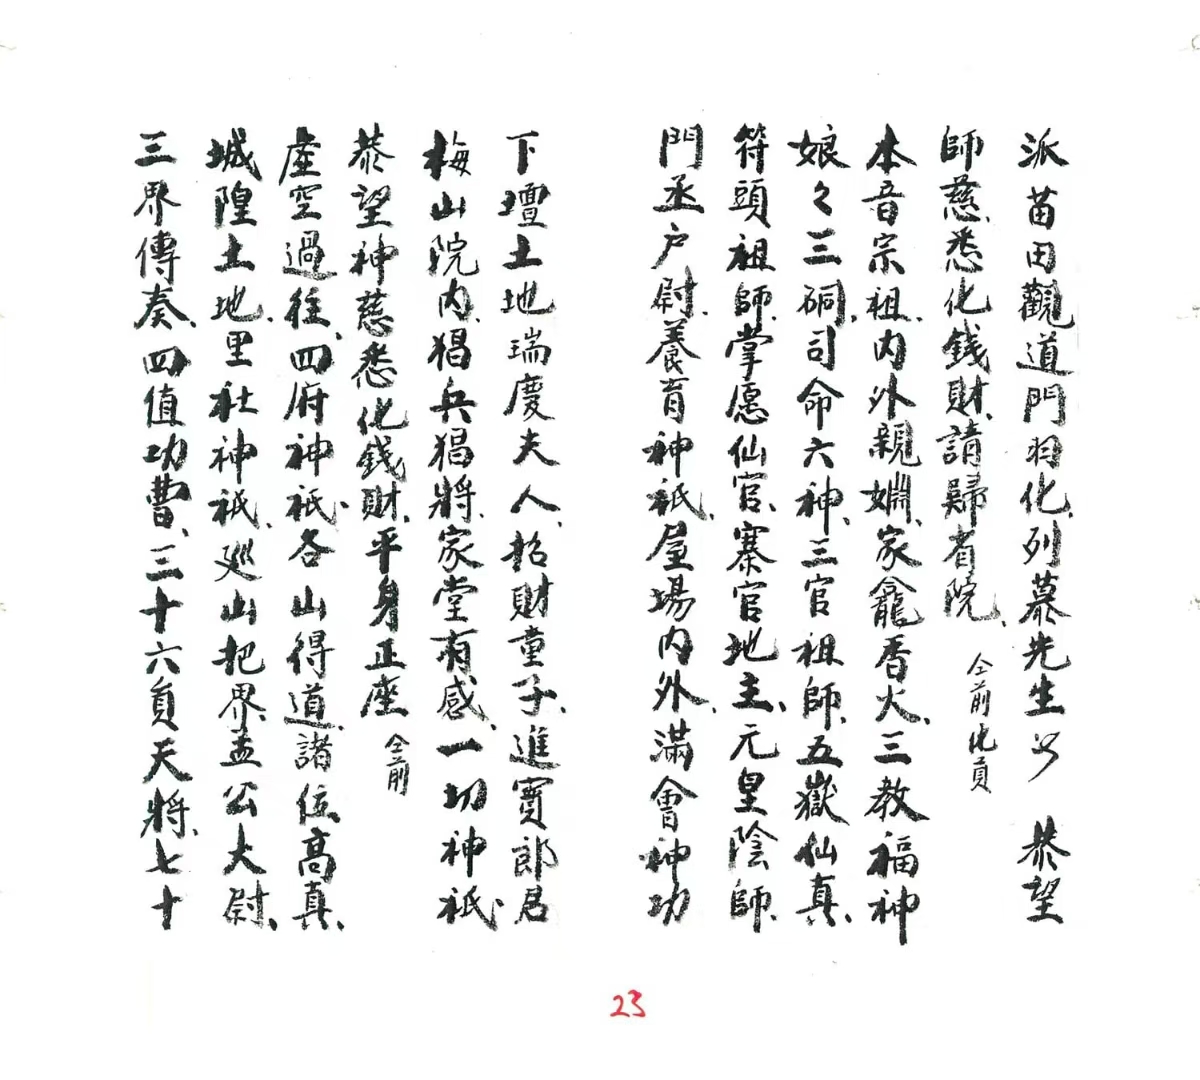 派苗田觀道門羽化、列墓先生公 恭望
師慈、悉化錢財、請歸省院、
仝前化員
本音宗祖、内外親姻、家龕香火、三教福神
娘々三硐司命六神、三官祖師、五嶽仙真、
符頭祖師、掌愿仙官、寨官地主、元皇陰師、
門丞户尉、養育神祇、屋場内外、滿會神功
下壇土地瑞慶夫人、招財童子、進寶郎君
梅山院内、猖兵猖將、家堂有感、一切神祇、
恭望神慈悉化錢財、平身正座
仝前
虚空過往、四府神祇、各山得道、諸位高真、
城隍土地、里社神祇、廵山把界、孟公大尉、
三界傳奏、四值功曹、三十六員天將、七十
23